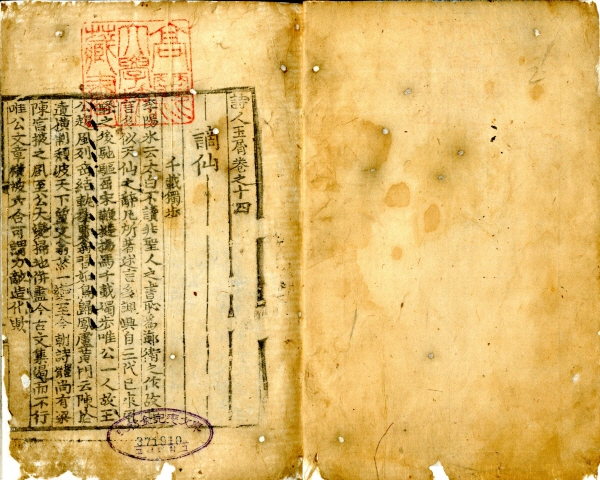 詩人玉屑卷之十四
謫仙
千載獨步
李陽冰云太白不讀非聖人之書恥爲鄭衛之作故
言多似天仙之辭凡所著述言多諷興自三代已來風
騷之後馳驅屈宋鞭撻揚馬千載獨步唯公一人故王
公趨風列岳結軌群賢翕習如鳥歸鳳盧黃門云陳拾
遺橫制頹波天下質文翕然一變至今朝詩體尚有梁
陳宮掖之風至公大變掃地併盡今古文集遏而不行
唯公文章橫被六合可謂力敵造化歟
大學
371910